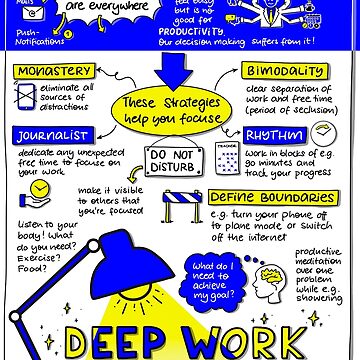 Mails
are everywhere
Push-
Notifications
feel busy
but is no
good for
PRODUCTIVITY.
Our decision making suffers from it!
MONASTERY
eliminate all
sources of
distractions
These Strategies
help you focuse
BIMODALITY
clear separation of
work and free time
(period of seclusion)
JOURNALIST
dedicate any unexpected
free time to focuse on
your work
DO NOT
DISTURB
TRACKER
RHYTHM
work in blocks of e.g.
90 minutes and
track your progress
make it visible
to others
that you're focused
DEFINE BOUNDARIES
e.g. turn your phone off
to plane mode or switch
off the internet
Listen to your
body! What
do you need?
Exercise?
Food?
What do I
need to
achieve
my goal?
productive
meditation
over one
problem
while e.g.
showering
DEEP WORK